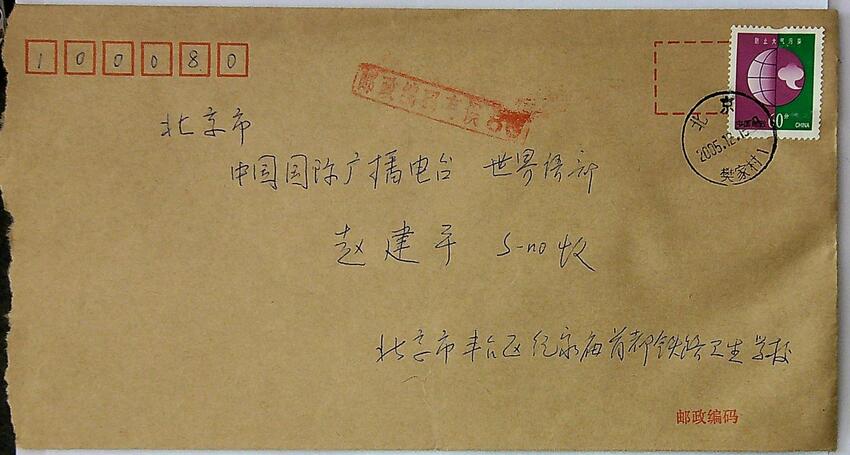 100080
防止大气污染
中国邮政 60分 CHINA
北京
2005.12.
樊家村1
邮政编码
北京市
中国国际广播电台 世界语部
赵建平 S-no收
北京市丰台区纪家庙首都铁路卫生学校
邮政编码